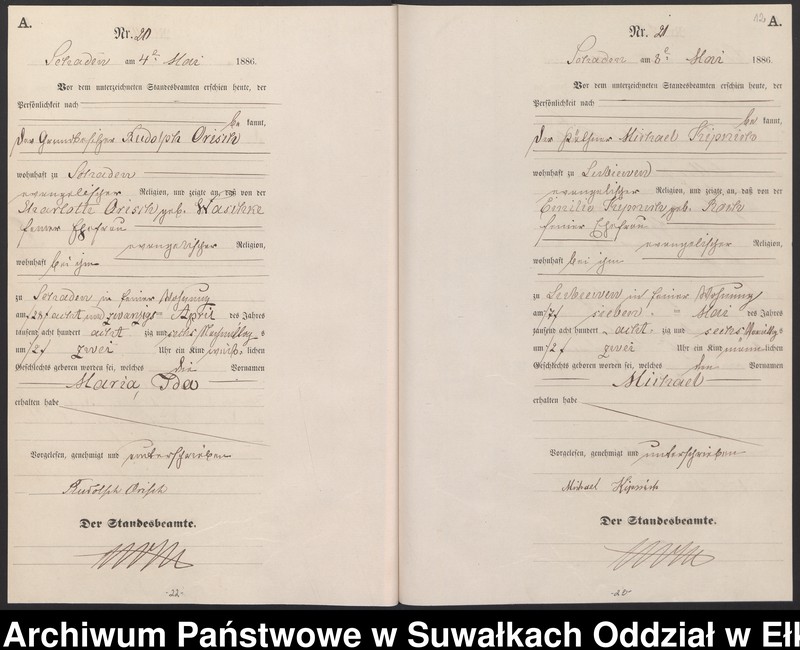 A.
Nr. 20
am 4ᵉ Mai 1886.
Vor dem unterzeichneten Standesbeamten erschien heute, der
Persönlichkeit nach
be kannt,
der Grundbesitzer Rudolph Orisch
wohnhaft zu
evangelischer Religion, und zeigte an, daß von der
Charlotte Orisch geb. Waschke
seiner Ehefrau
evangelischer Religion,
wohnhaft bei ihm
zu in seiner Wohnung
am 28/ acht und zwanzigsten April des Jahres
tausend acht hundert acht zig und sechs Nachmittags
um 2/ zwei Uhr ein Kind weib lichen
Geschlechts geboren worden sei, welches die Vornamen
Maria, Ida
erhalten habe
Vorgelesen, genehmigt und unterschrieben
Rudolph Orisch
Der Standesbeamte.
-22-
12 A.
Nr. 21
am 8ᵉ Mai 1886.
Vor dem unterzeichneten Standesbeamten erschien heute, der
Persönlichkeit nach
be kannt,
der Michael
wohnhaft zu
evangelischer Religion, und zeigte an, daß von der
Emilie geb.
seiner Ehefrau
evangelischer Religion,
wohnhaft bei ihm
zu in seiner Wohnung
am 7/ sieben Mai des Jahres
tausend acht hundert acht zig und sechs
um 2/ zwei Uhr ein Kind männ lichen
Geschlechts geboren worden sei, welches den Vornamen
Michael
erhalten habe
Vorgelesen, genehmigt und unterschrieben
Michael
Der Standesbeamte.
-20-
Archiwum Państwowe w Suwałkach Oddział w Ełk